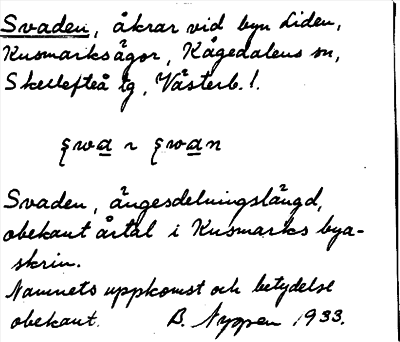 Svaden, åkrar vid byn Liden,
Kusmarksågor, Kågedalens sn,
Skellefteå tg, Västerb. l.
ʂwa̲ ~ ʂwa̲n
Svaden, ängesdelningslängd,
obekant årtal i Kusmarks bya-
skrin.
Namnets uppkomst och betydelse
obekant. B. Nyppen 1933.